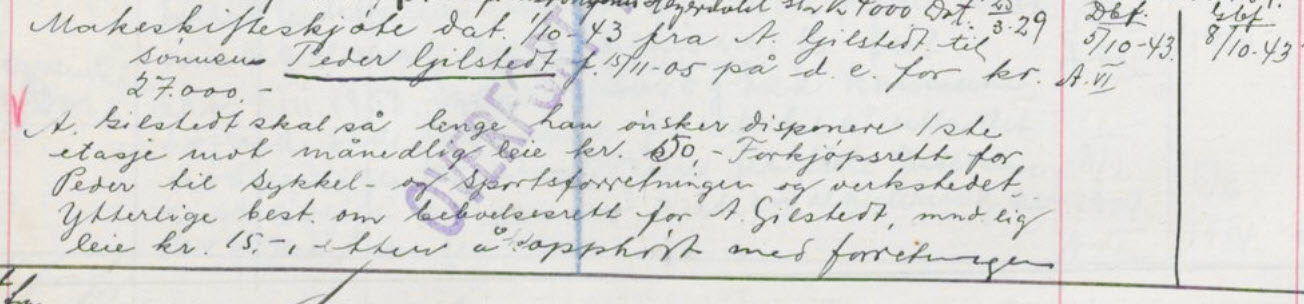 stor kr 4000 Dat. 23/3-29
Dbf. Gbf
Makeskifteskjøte dat. 1/10-43 fra A. Gilstedt til 5/10-43. 8/10-43
sønnen Peder Gilstedt f. 15/11-05 på d. e. for kr. A. VI
27.000.-
A. Gilstedt skal så lenge han ønsker disponere 1ste
etasje mot månedlig leie kr. 50,- Forkjøpsrett for
Peder til sykkel- og sportsforretningen og verkstedet.
Ytterlige best. om beboelsesrett for A. Gilstedt, mnd.lig
leie kr. 15.-, etter å ha opphørt med forretningen
OVERF